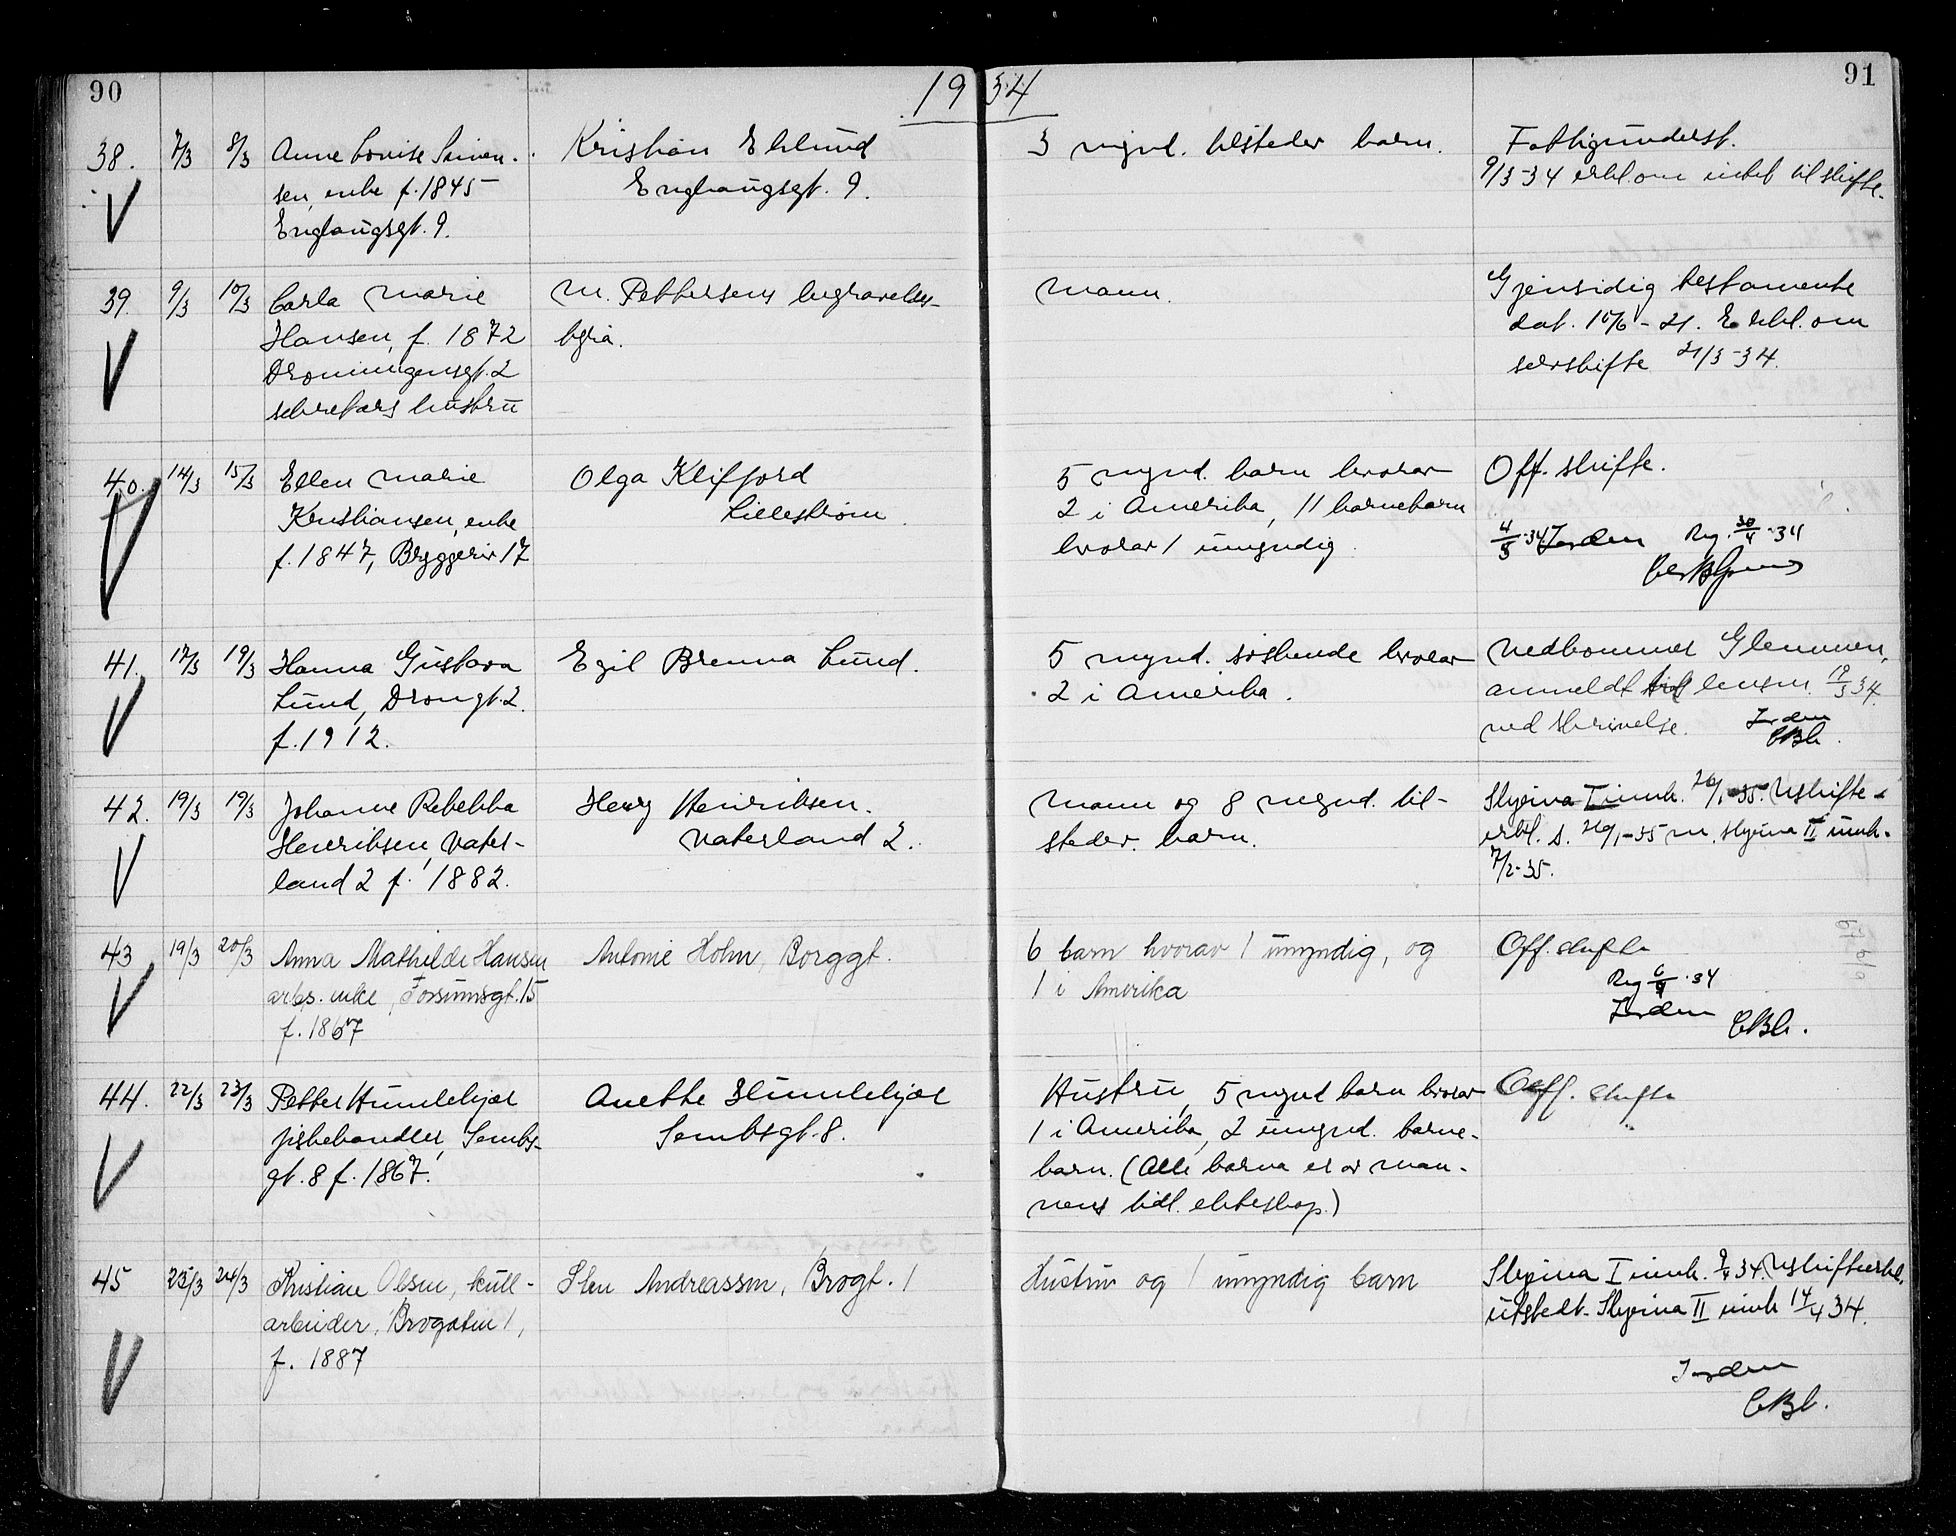 90
1934
91
38. 7/3 8/3 Anne Lovise Simen-
sen, enke f. 1845
Englaugsgt. 9.
Kristian Eklund
Englaugsgt. 9.
3 mynd. tilsteder barn.
Fattigunderst.
9/3-34 erkl. om intet til skifte.
39. 9/3 10/3 Carla Marie
Hansen, f. 1872
Dronningensgt. 2
sekretærs hustru
M. Pettersens begravelses-
byrå.
Mann.
Gjensidig testamente
dat. 10/6-21. Erkl. om
særskifte 21/3-34.
40. 14/3 15/3 Ellen Marie
Kristiansen, enke
f. 1847, Bryggeriv 17
Olga Klifford
Lillestrøm.
5 mynd. barn hvorav
2 i Amerika, 11 barnebarn
hvorav 1 umyndig.
Off. skifte.
4/5-34. Jorden Reg. 30/4-34
41. 17/3 19/3 Hanna Gustava
Lund, Drongt. 2.
f. 1912.
Egil Brenna Lund.
5 mynd. søskende hvorav
2 i Amerika.
Vedkommer Glemmen,
anmeldt lensm. 19/3 34.
ved skrivelse. Jorden
CBh.
42. 19/3 19/3 Johanne Rebekka
Henriksen, Vater-
land 2 f. 1882.
Henry Henriksen.
Vaterland 2.
Mann og 8 mynd. til-
steder. barn.
Skjema I innk. 26/1-35. Uskifte-
erkl. s. 26/1-35 m. skjema II innk.
7/2-35.
43 19/3 20/3 Anna Mathilde Hansen
arbs. enke, Forsumsgt. 15
f. 1867
Antonie Holm, Borggt.
6 barn hvorav 1 umyndig, og
1 i Amerika
Off. skifte
Reg 6/4-34
Jorden
CBh.
44. 22/3 23/3 Petter Humlekjær
fiskehandler, Sembs-
gt. 8 f. 1867.
Anette Humlekjær
Sembsgt. 8.
Hustru, 5 mynd barn hvorav
1 i Amerika, 2 umynd. barne-
barn. (Alle barna er av man-
nens tidl. ekteskap.)
Off. skifte
45 23/3 24/3 Kristian Olsen, kull-
arbeider, Brogaten 1,
f. 1887
Sten Andreassen, Brogt. 1
Hustru og 1 umyndig barn
Skjema I innk. 9/4 34. Uskifteerkl.
utstedt. Skjema II innk 14/4 34.
Jorden
CBh.